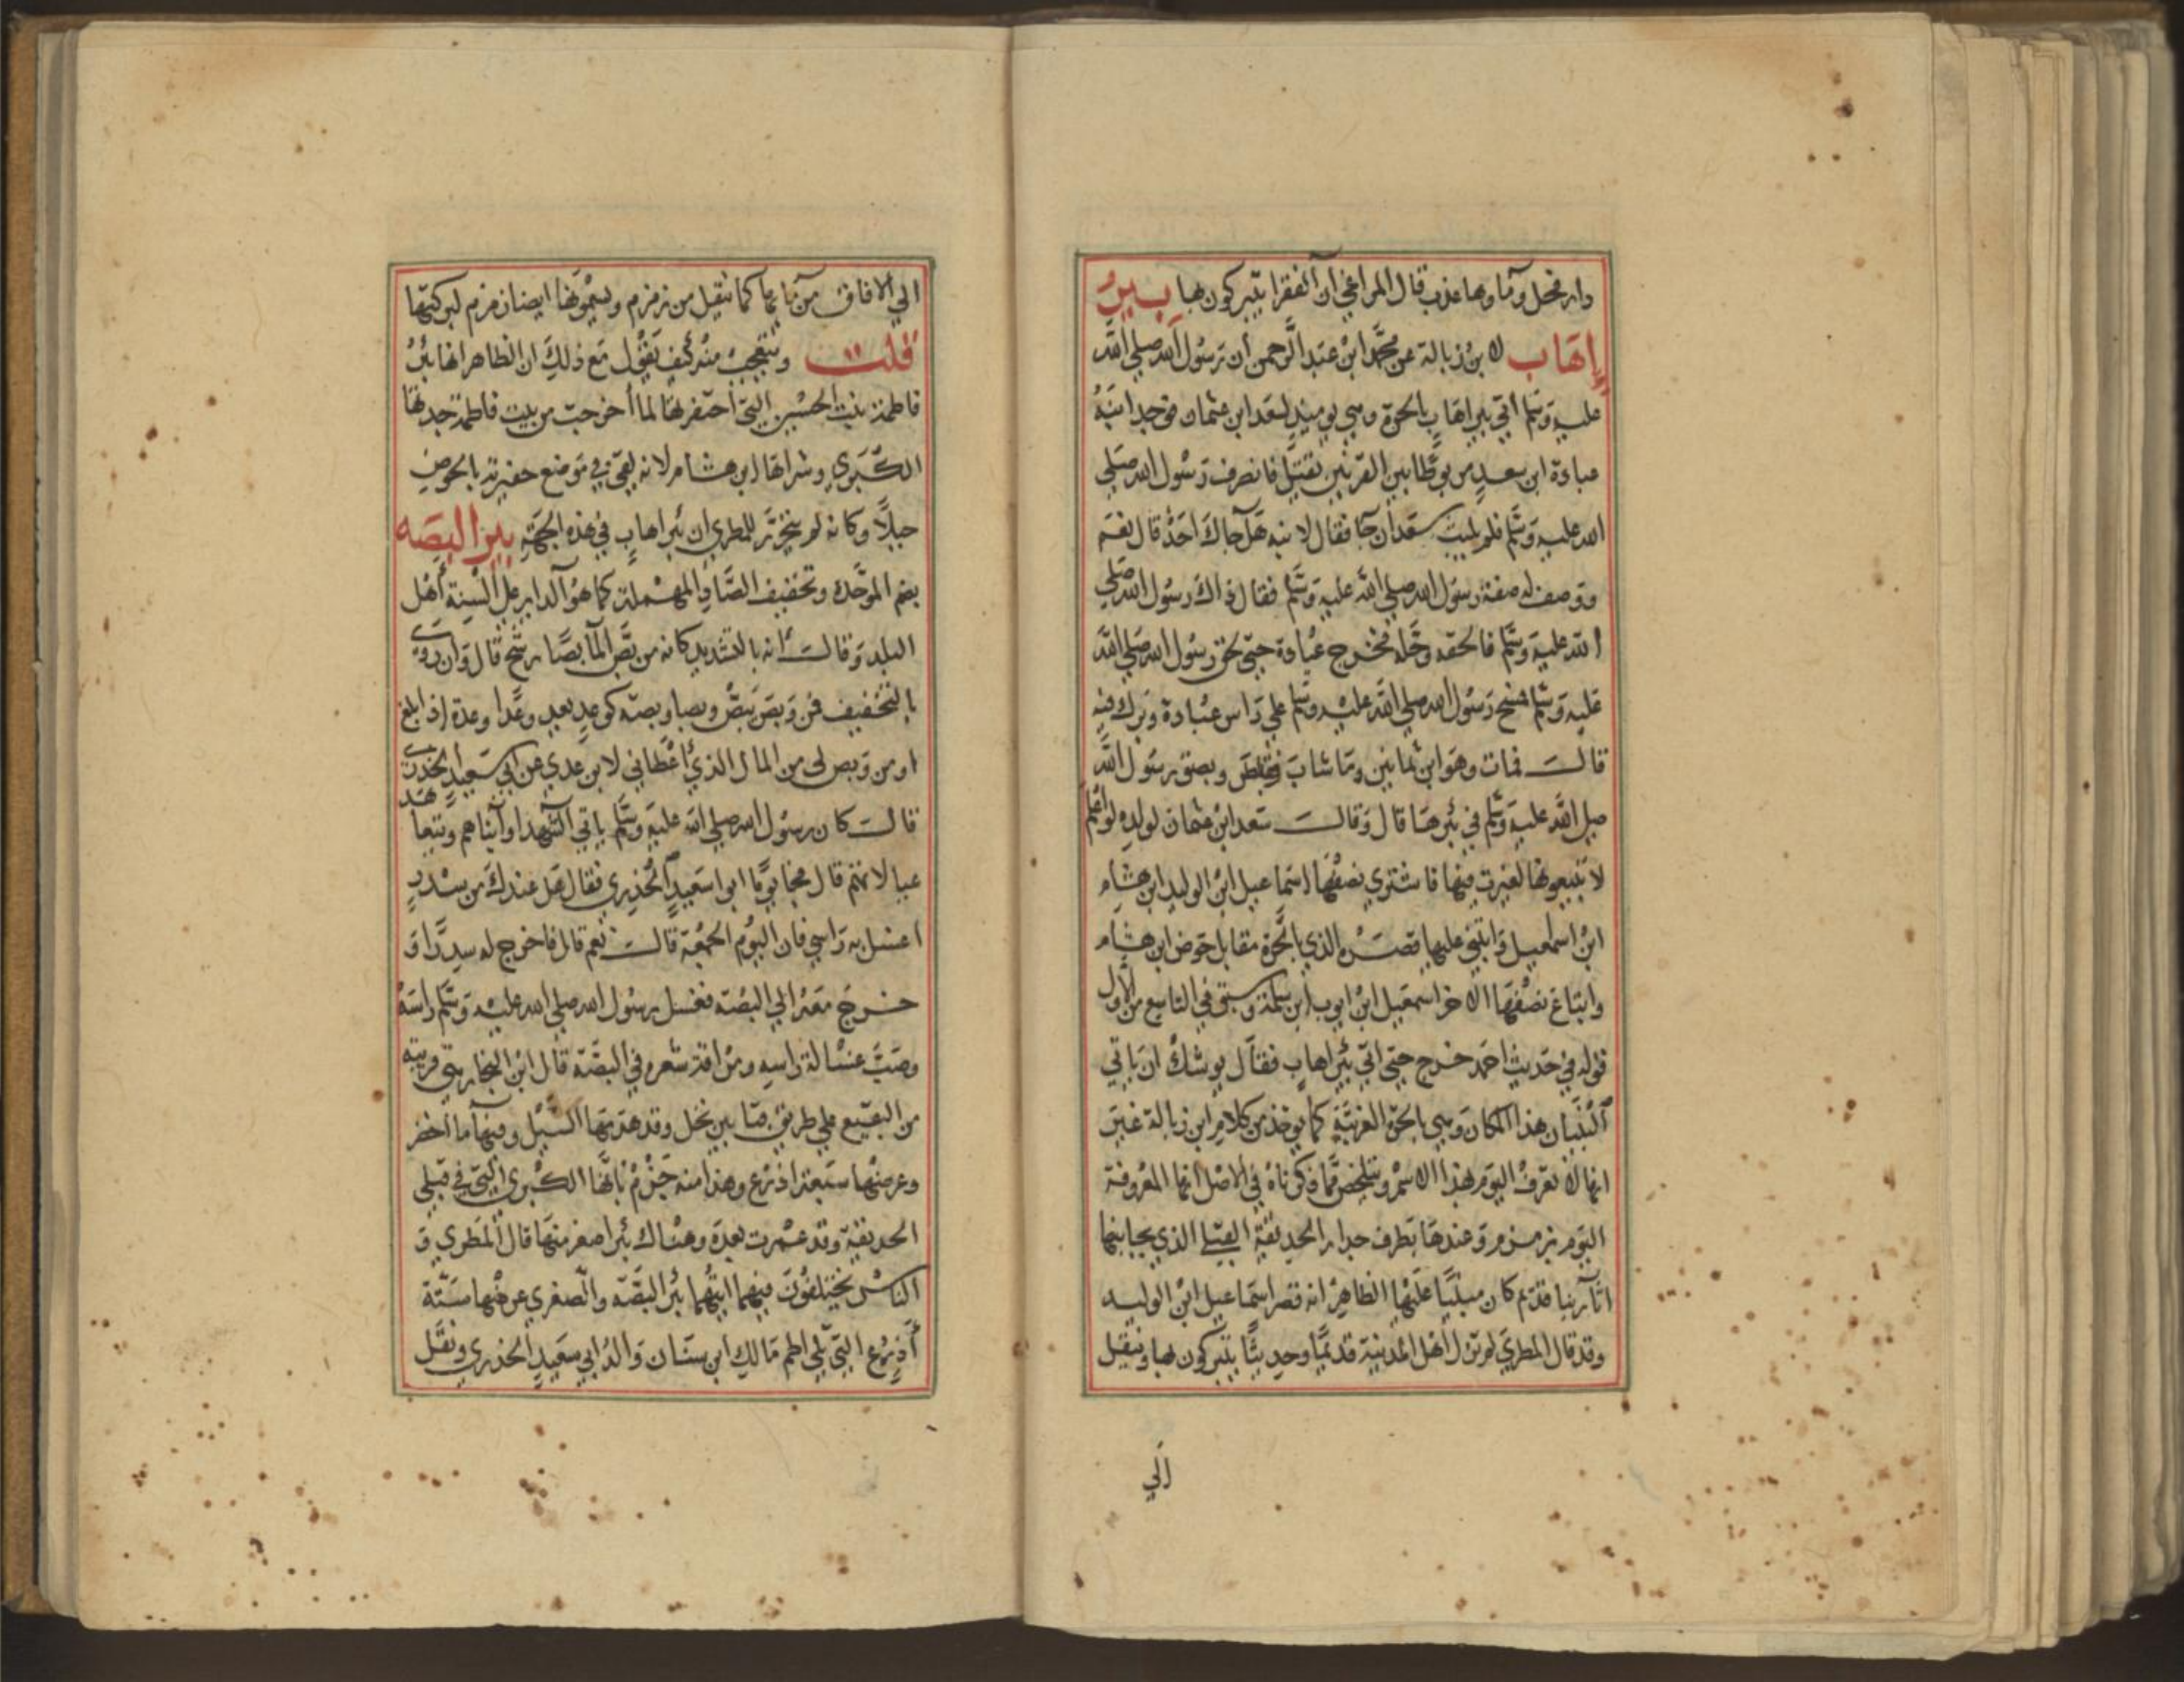 دار نخل وماوها عذب قال المراغي ان الفقرا يتبركون بها بير
إهاب لابن زبالة عن محمد ابن عبد الرحمن ان رسول الله صلى الله
عليه وسلم اتي بير اهاب بالحرة وهي يوميذ لسعد ابن عثمان فوجد ابنه
عبادة ابن سعد مربوطا بين القرنين يفتل فانصرف رسول الله صلي
الله عليه وسلم فلم يلبث سعد ان جا فقال لابنه هل جاك احد قال نعم
ووصف له صفة رسول الله صلي الله عليه وسلم فقال ذاك رسول الله صلي
الله عليه وسلم فالحقه وحله فخرج عبادة حتي لحق رسول الله صلي الله
عليه وسلم فمسح رسول الله صلي الله عليه وسلم علي راس عبادة وبرك فيه
قالت فمات وهو ابن ثمانين وما شاب وبصق رسول الله
صلي الله عليه وسلم في بئرها قال وقالت سعد ابن عثمان لولده لو اعلم
لا تبيعونها لقبرت فيها فاشتري نصفها اسماعيل ابن الوليد ابن هشام
ابن اسمعيل وابتني عليها قصره الذي بالحرة مقابل حوض ابن هشام
وابتاع نصفها الاخر اسمعيل ابن ايوب ابن سلمة وسبق في التاسع من الاول
قوله في حديث احمد خرج حتي اتي بئر اهاب فقال يوشك ان ياتي
البنيان هذا المكان وهي بالحرة الغربية كما يوخذ من كلام ابن زبالة غير
انها لا تعرف اليوم بهذا الاسم وتلخص مما ذكرناه في الاصل انها المعروفة
اليوم بزمزم وعندها بطرف جدار الحديقة القبلي الذي بجانبها
اثار بنا قديم كان مبنيا عليها الظاهر انه قصر اسماعيل ابن الوليد
وقد قال المطري لم تزل اهل المدينة قديما وحديثا يتبركون بها وينقل
الي
الي الافاق من مايها كما ينقل من زمزم ويسمونها ايضا زمزم لبركتها
قلت ويتعجب منه كيف يقول مع ذلك ان الظاهر انها بئر
فاطمة بنت الحسين التي احتفرتها لما أخرجت من بيت فاطمة جدتها
الكبري وشراها ابن هشام لانه لقي في موضع حفيرته بالحوض
جبلا وكانه لم يتحرر للمطري ان بئر اهاب في هذه الجهة بير البصه
بضم الموحدة وتخفيف الصاد المهملة كما هو الداير علي السنة أهل
البلد وقالت انه بالتشديد كانه من بص الما بصا رشح قال وان روي
بالتخفيف فمن وبص يبص وبصا وبصة كوعد يعد وعدا وعدة اذا بلغ
او من وبص لي من المال الذي أعطاني لابن عدي عن ابي سعيد الخدري
قالت كان رسول الله صلي الله عليه وسلم ياتي الشهدا وأبناهم ويتعاهد
عيالاتهم قال فجا يوما ابو اسعيد الخذري فقال هل عندك من سدر
اغسل به راسي فان اليوم الجمعة قالت نعم قال فاخرج له سدرا و
خرج معه الي البصة فغسل رسول الله صلي الله عليه وسلم راسه
وصب غسالة راسه ومراقة شعره في البصة قال ابن النجار هي قريبة
من البقيع علي طريق قبا بين نخل وقد هدمها السيل وفيها ما اخضر
وعرضها سبعة اذرع وهذا منه جزم بانها الكبري التي في قبلي
الحديقة وقد عمرت بعده وهناك بئر اصغر منها قال المطري و
الناس يختلفون فيهما ايتهما بئر البصة والصغري عرضها ستة
أذرع التي تلي اطم مالك ابن سنان والد ابي سعيد الخذري ونقل